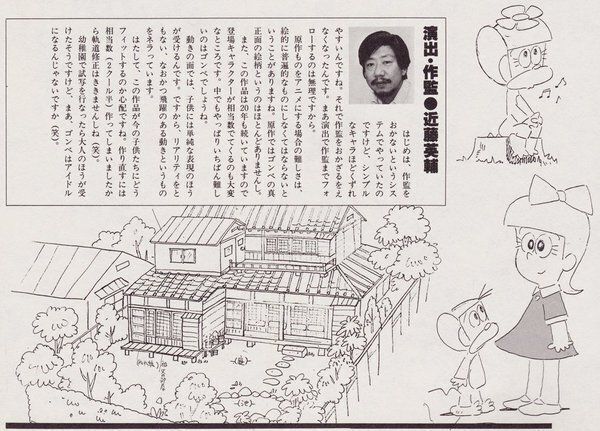 演出・作監●近藤英輔
はじめは、作監を
おかないというシス
テムでやっていたの
ですけど、シンプル
なキャラほどくずれ
やすいんですね。それで作監をおかざるをえ
なくなったんです。まあ演出で作監までフォ
ローするのは無理ですから。
原作ものをアニメにする場合の難しさは、
絵的に普遍的なものにしなくてはならないと
いうことがありますね。原作ではゴンベの真
正面の絵柄というのはほとんどありませんし。
また、この作品は20年も続いていますので
登場キャラクターが相当数でてくるのも大変
なところです。中でもやっぱりいちばん難し
いのはゴンベでしょうね。
動きの面では、子供には単純な表現のほう
が受けるんです。ですから、リアリティをと
もない、なおかつ飛躍のある動きというもの
をネラっています。
はたして、この作品が今の子供たちにどう
フィットするのか心配ですね。作り直すには
相当数（２クール半）作ってしまいましたか
ら軌道修正はききませんしね（笑）。
幼稚園で試写を行なったら大人のほうが受
けたそうですけど、まあ、ゴンベはアイドル
になるんじゃないですか（笑）。
(庭)
(池)